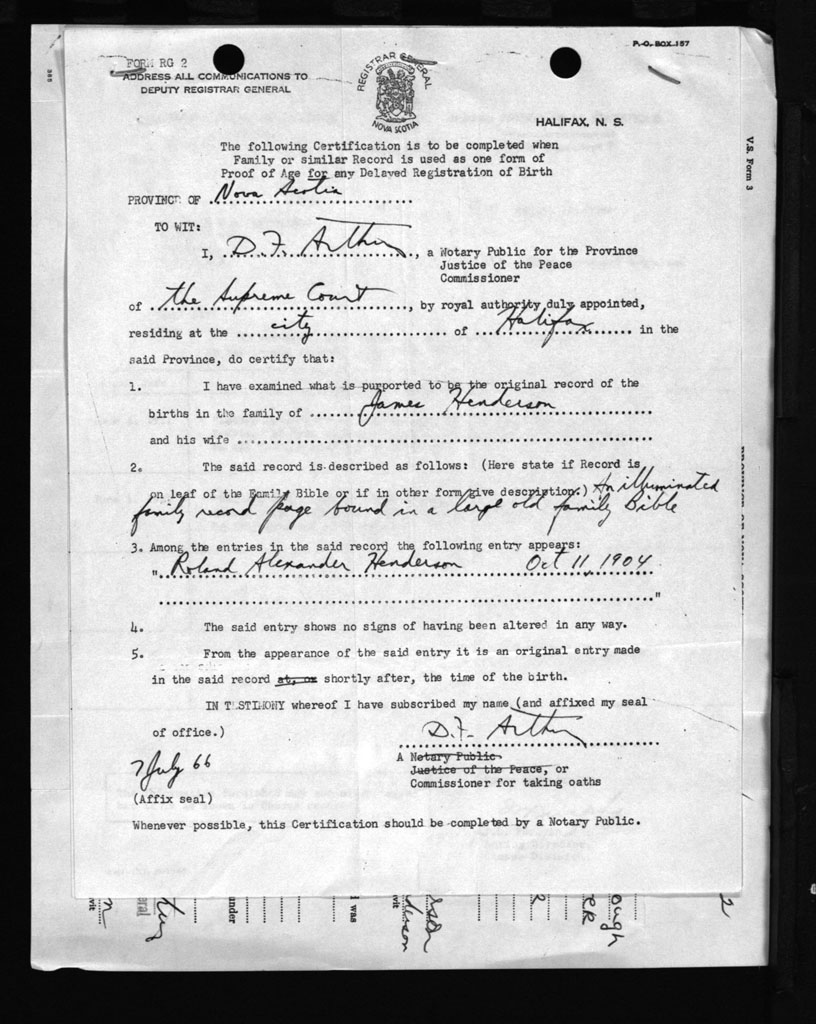 P. O. BOX 157
FORM RG 2
ADDRESS ALL COMMUNICATIONS TO
DEPUTY REGISTRAR GENERAL
REGISTRAR GENERAL
NOVA SCOTIA
HALIFAX, N. S.
V.S. Form 3
The following Certification is to be completed when
Family or similar Record is used as one form of
Proof of Age for any Delayed Registration of Birth
PROVINCE OF Nova Scotia
TO WIT:
I, D. F. Arthur, a Notary Public for the Province
Justice of the Peace
Commissioner
of the Supreme Court, by royal authority duly appointed,
residing at the city of Halifax in the
said Province, do certify that:
1. I have examined what is purported to be the original record of the
births in the family of James Henderson
and his wife
2. The said record is described as follows: (Here state if Record is
on leaf of the Family Bible or if in other form give description.) An illuminated
family record page bound in a large old family Bible
3. Among the entries in the said record the following entry appears:
" Roland Alexander Henderson Oct 11, 1904
"
4. The said entry shows no signs of having been altered in any way.
5. From the appearance of the said entry it is an original entry made
in the said record at, or shortly after, the time of the birth.
IN TESTIMONY whereof I have subscribed my name (and affixed my seal
of office.)
D. F. Arthur
7 July 66
A Notary Public
Justice of the Peace, or
Commissioner for taking oaths
(Affix seal)
Whenever possible, this Certification should be completed by a Notary Public.
under
I was
2